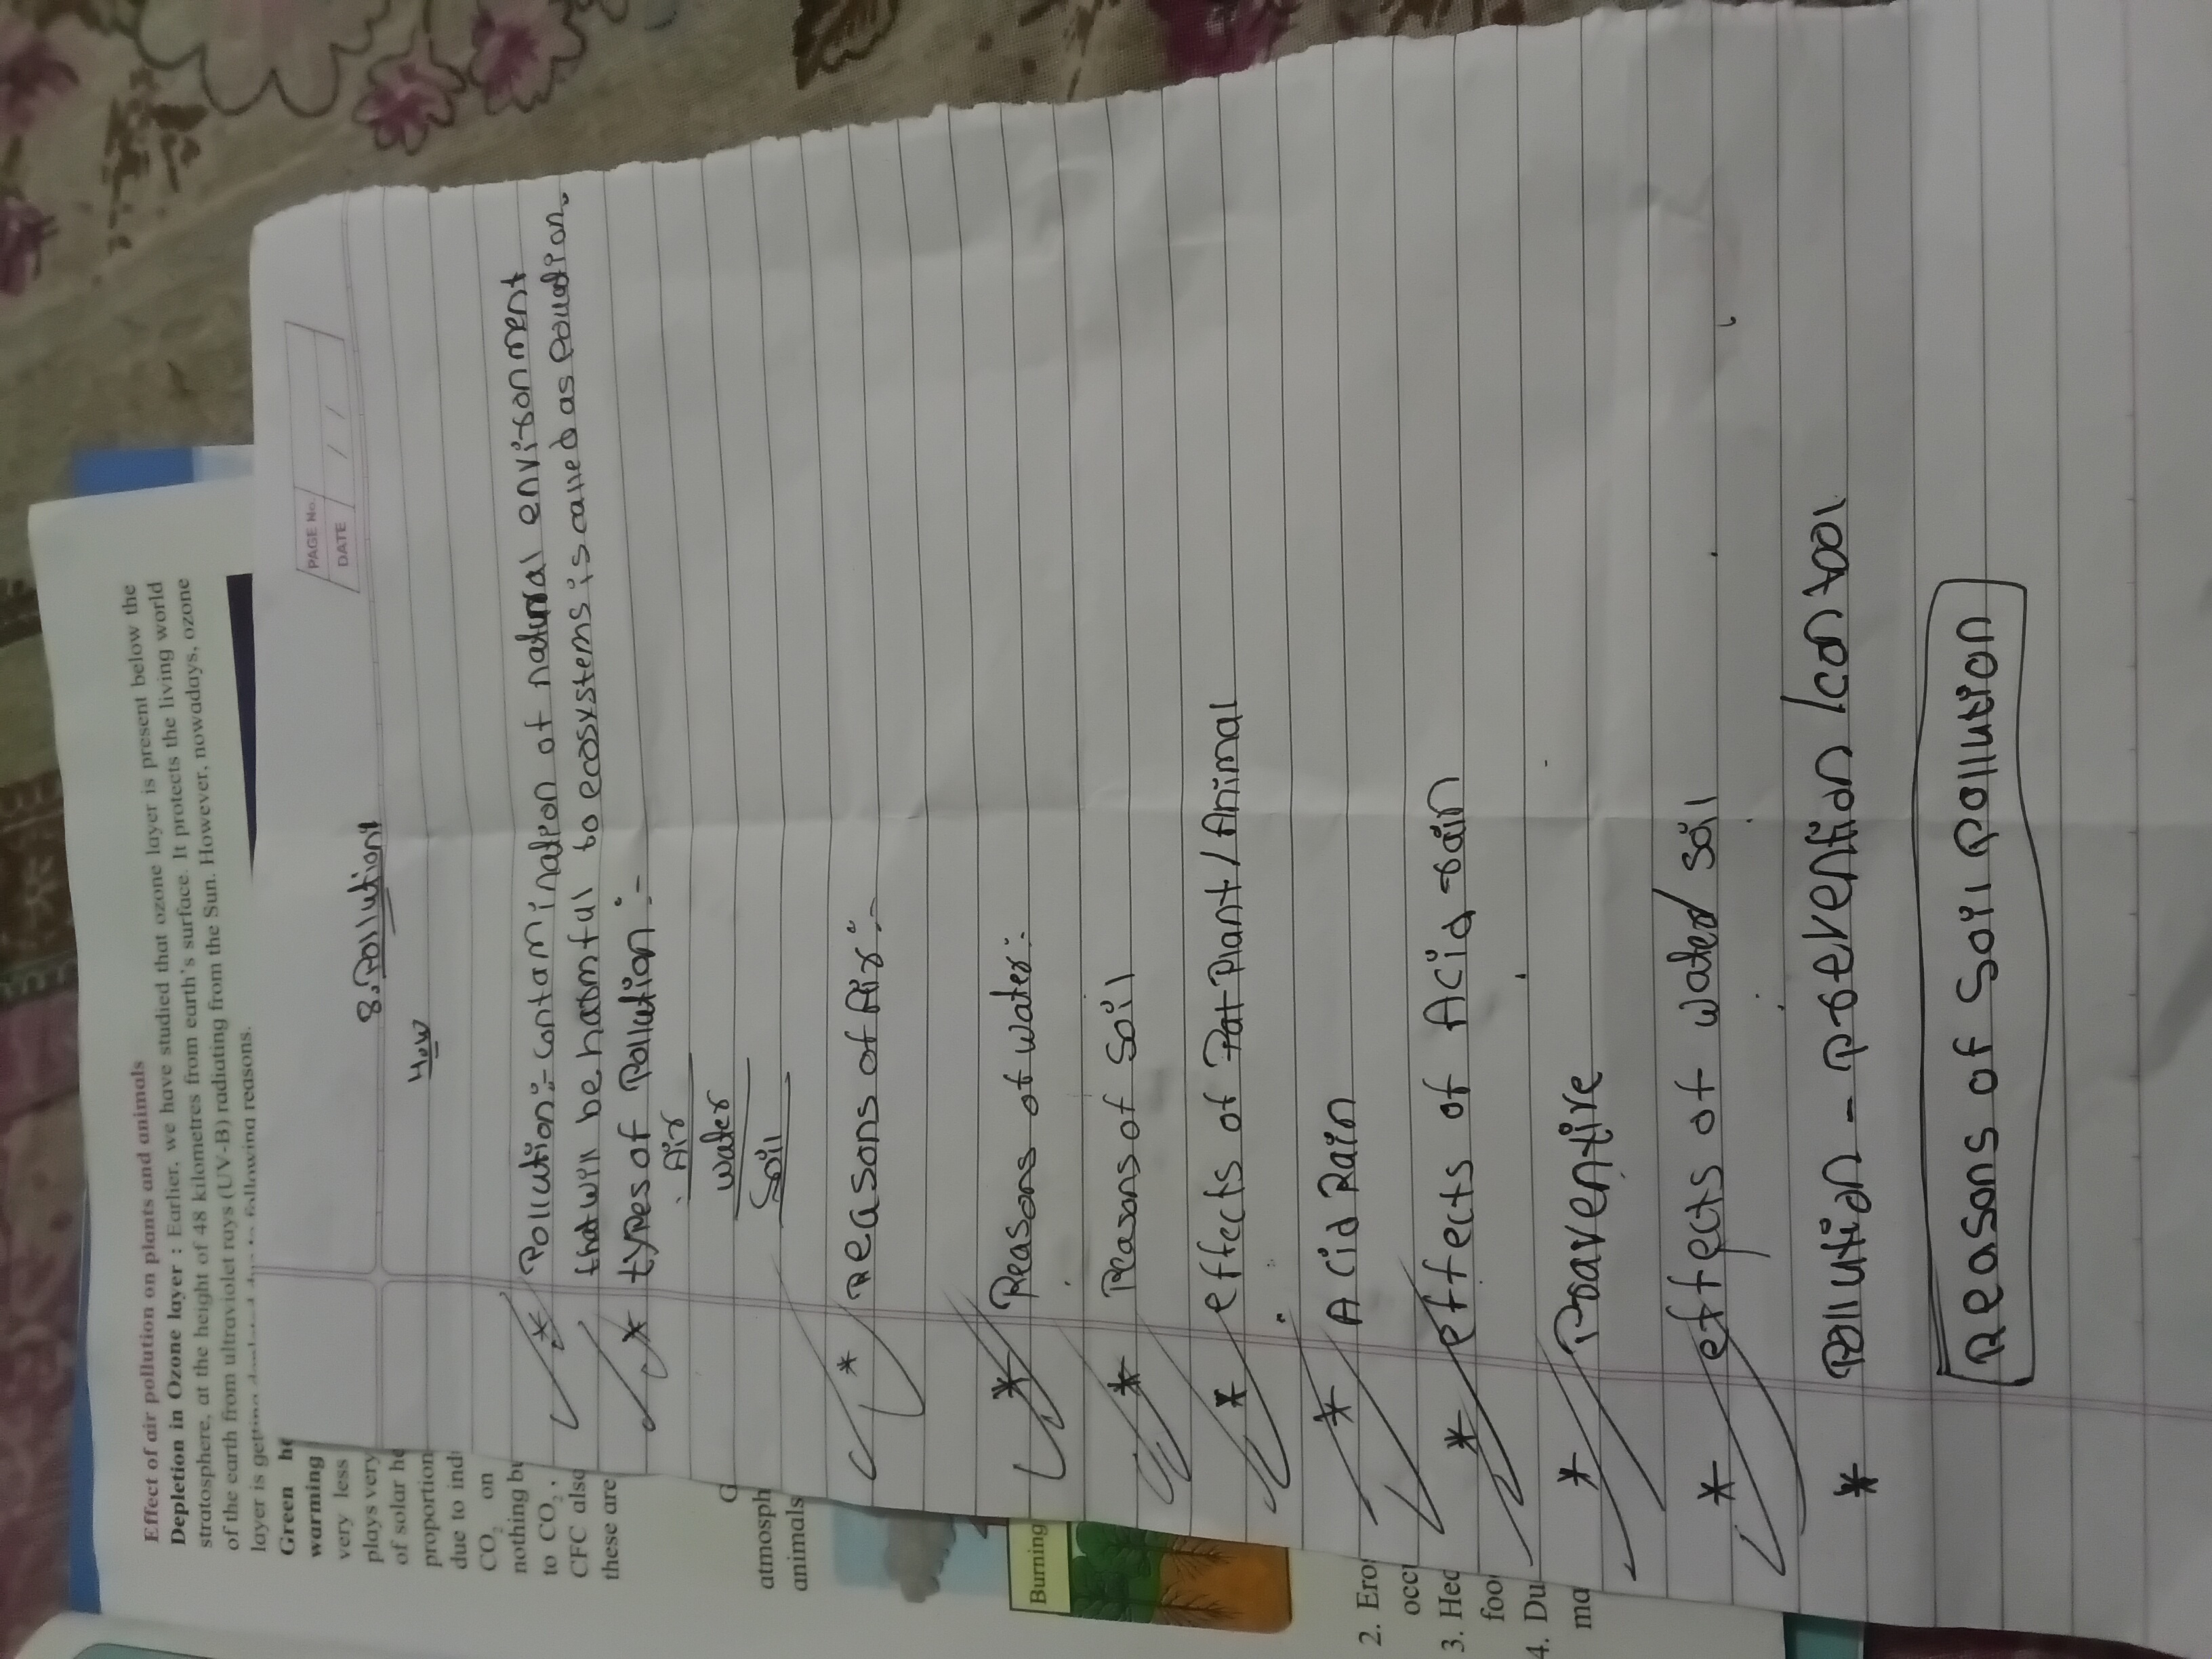 Effect of air pollution on plants and animals
Depletion in Ozone layer : Earlier, we have studied that ozone layer is present below the
stratosphere, at the height of 48 kilometres from earth's surface. It protects the living world
of the earth from ultraviolet rays (UV-B) radiating from the Sun. However, nowadays, ozone
layer is following reasons.
Green
warming
very less
plays very
of solar
proportion
due to
CO2 on
nothing
to CO2,
CFC
these are
atmosph
animals
Burning
2.
3.
4.
PAGE No.
DATE / /
8. Pollution
H.W
* Pollution:- Contamination of natural environment
that will be harmful to ecosystems is called as Pollution.
* types of Pollution :-
Air
water
Soil
* Reasons of Air :-
* Reasons of water :-
* Reasons of Soil
* effects of Plant / Animal
* Acid Rain
* effects of Acid -rain
* Praventire
* effects of water/ Soil
* Pollution - prevention / control
Reasons of Soil pollution